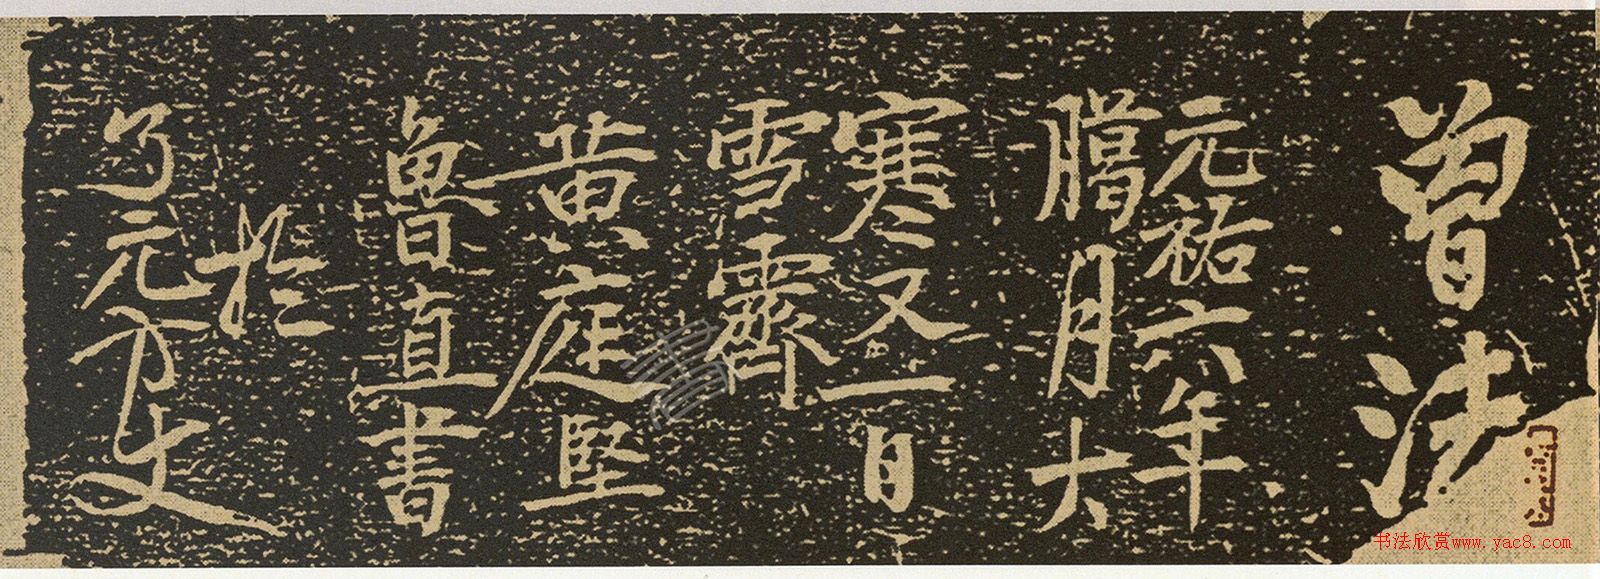 曾法
元祐六年
臘月大
寒又一日
雪霽
黄庭堅
魯直書
於
了元方丈
书法欣赏www.yac8.com